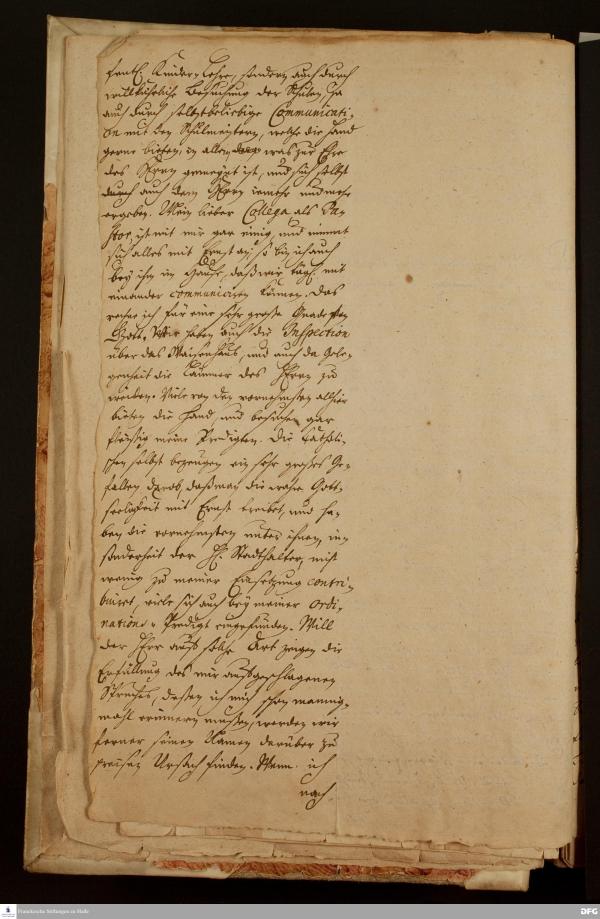 fentl. Kinder-Lehre, sondern auch durch
willkührliche Besuchung der Schulen, Ja
auch durch selbstbeliebige Communicati-
on mit den Schulmeistern, welche die Hand
gerne bieten, in allem was zur Ehre
des HErrn gemeynt ist, und sich selbst
durch auch dem HErrn iemehr und mehr
ergeben. Mein lieber Collega, als Pa-
stor, ist mit mir gar einig, und nimmt
sich alles mit Ernst an, so bin ich auch
bey ihm im Hause, daß wir tägl. mit
einander communiciren können. Das
rechne ich für eine sehr große Gnade von
Gott. Wir haben auch die Inspection
über das Waisenhaus, und auch da Gele-
genheit die Lämmer des HErrn zu
weiden. Viele von den vornehmsten alhier
bieten die Hand, und besuchen gar
fleißig meine Predigten. Die Catholi-
schen selbst bezeugen ein sehr großes Ge-
fallen drob, daß man die wahre Gott-
seeligkeit mit Ernst treibet, und ha-
ben die vornehmsten unter ihnen, in-
sonderheit der H. Stadthalter, nicht
wenig zu meiner Einsetzung contri-
buiret, viele sich auch bey meiner ordi-
nations-Predigt eingefunden. Will
der HErr auf solche Art zeigen die
Erfüllung des mir aufgeschlagenen
Spruchs, deßen ich mich schon mannig-
mahl erinnern mußen, werden wir
ferner seinen Namen darüber zu
preisen Ursach finden. Wenn ich
nach
Franckesche Stiftungen zu Halle
DFG